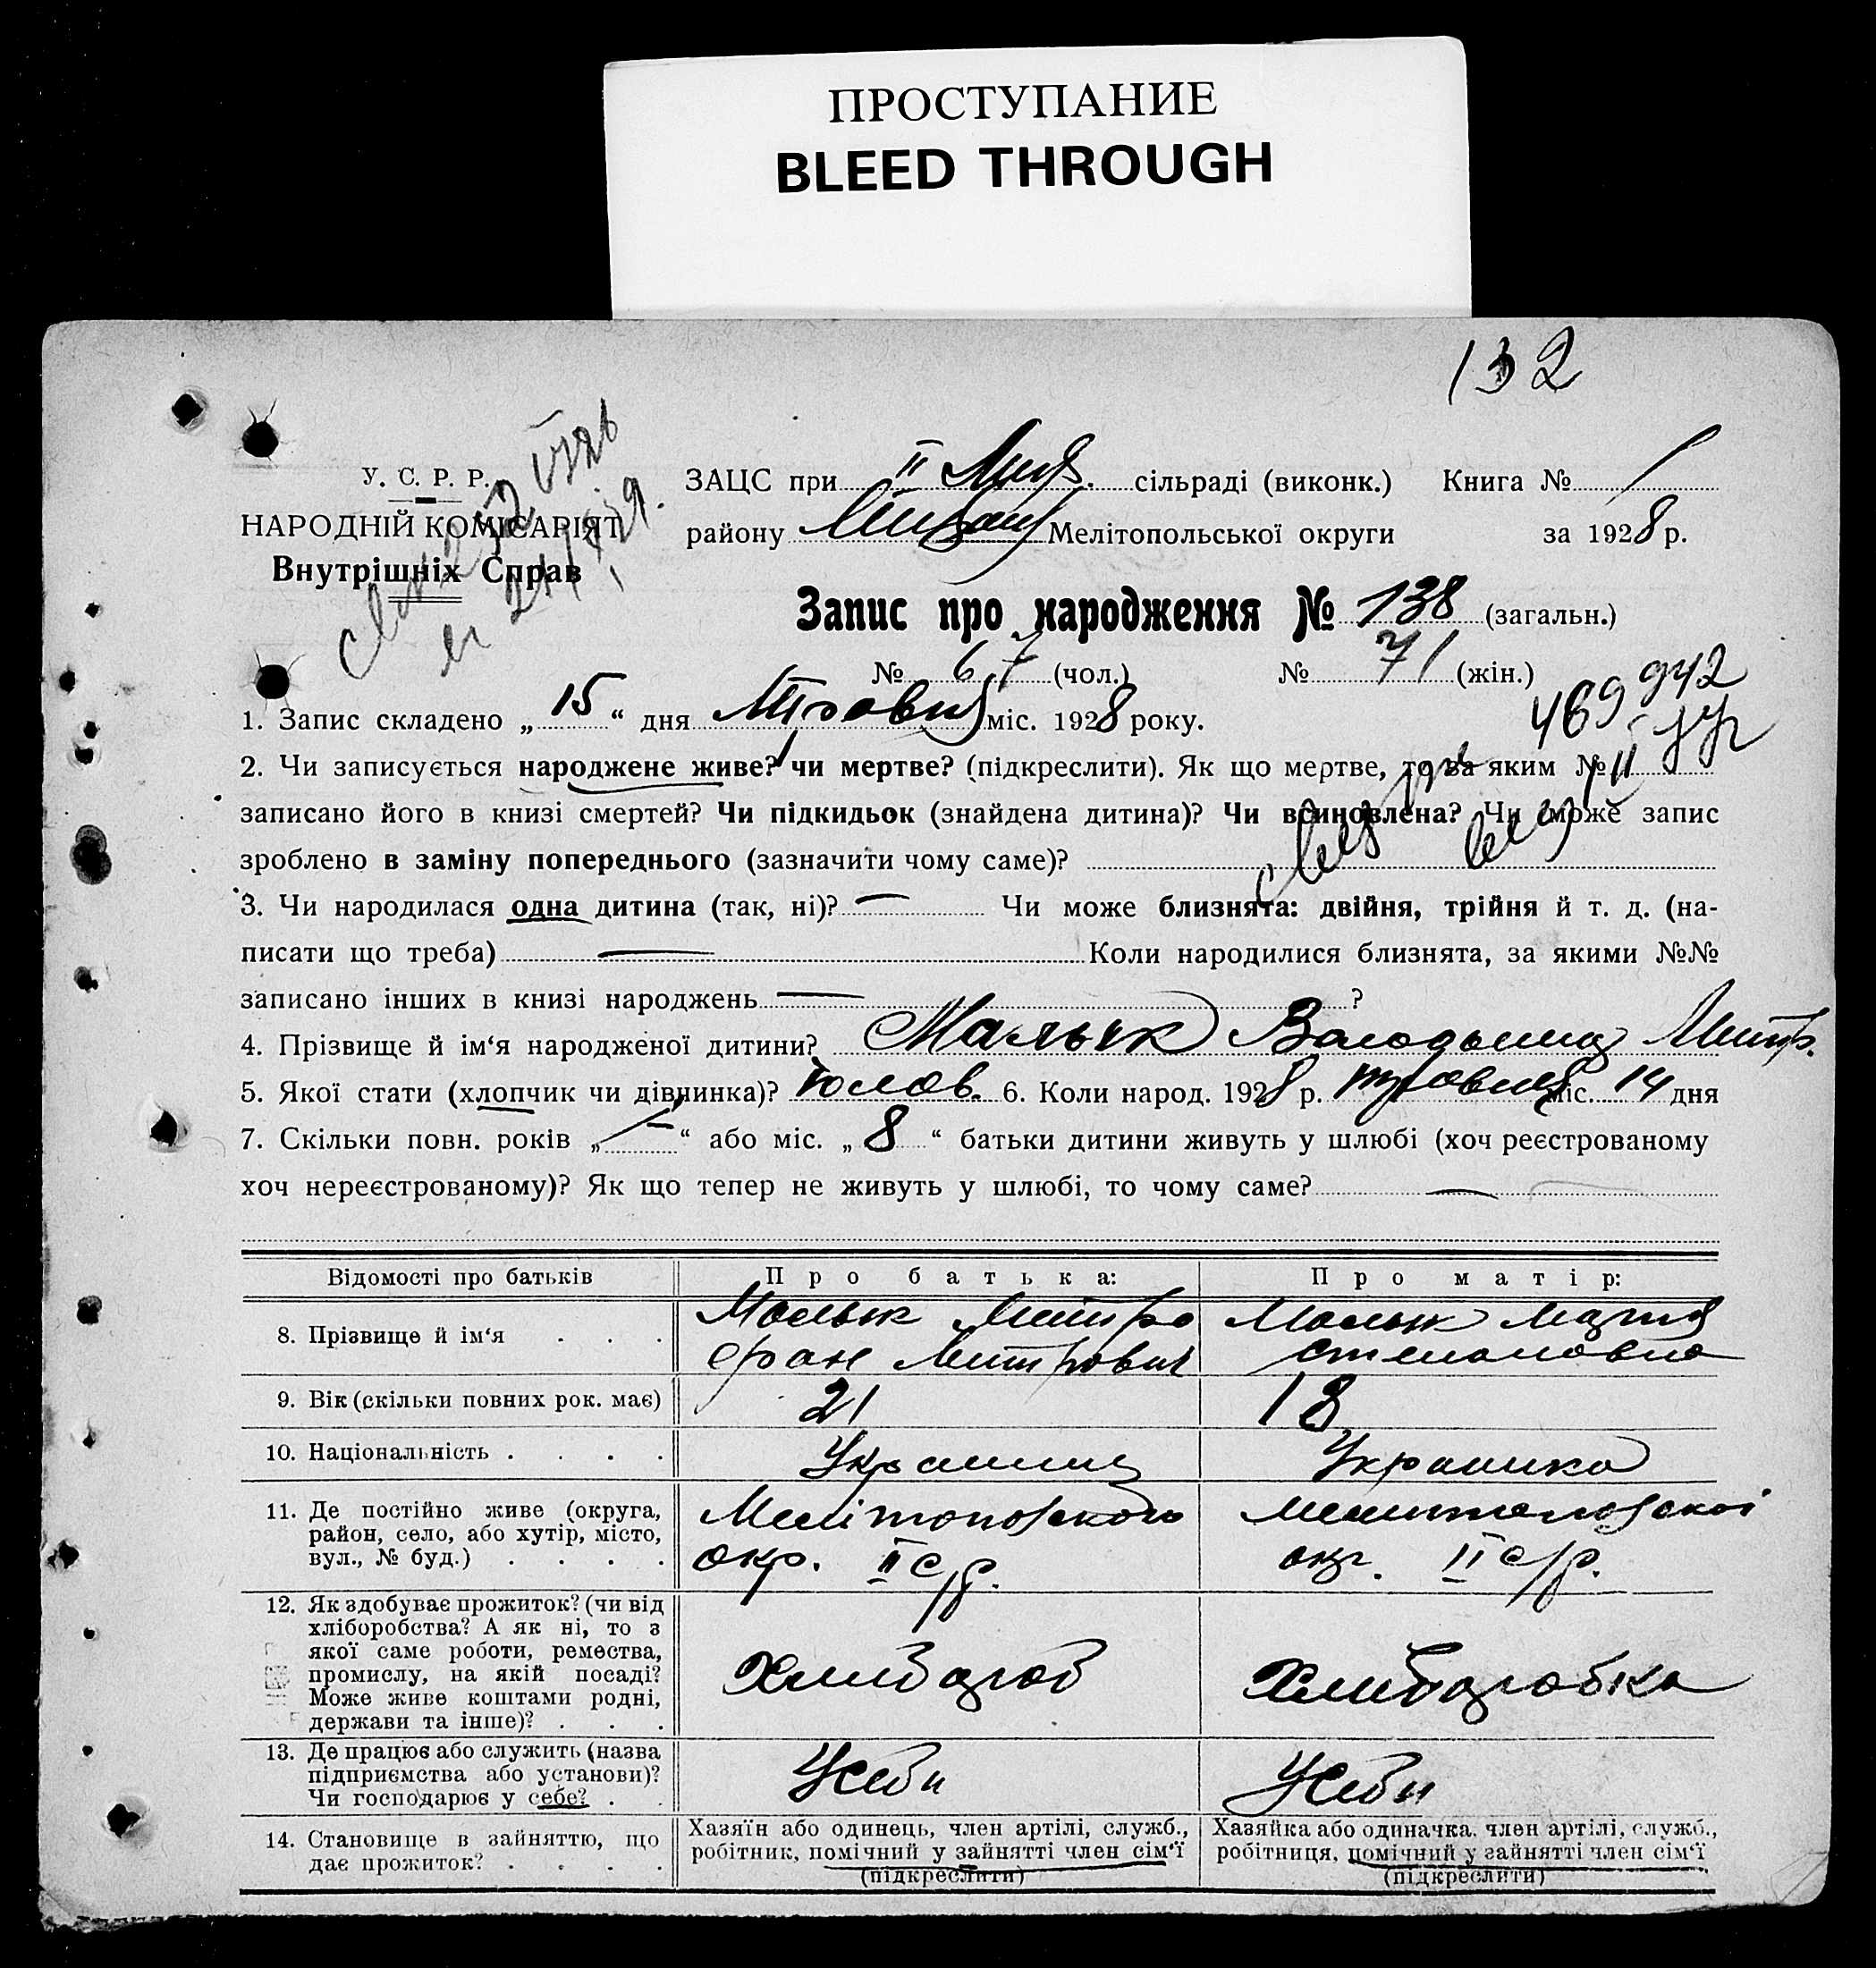 ПРОСТУПАНИЕ
BLEED THROUGH
132
У. С. Р. Р.
НАРОДНІЙ КОМІСАРІЯТ
Внутрішніх Справ
ЗАЦС при II сільраді (виконк.) Книга № 1
району Мелітопольської округи за 1928 р.
Запис про народження № 138 (загальн.)
№ 67 (чол.) № 71 (жін.)
469942
1. Запис складено „ 15 “ дня Травня міс. 1928 року.
2. Чи записується народжене живе? чи мертве? (підкреслити). Як що мертве, то за яким №
записано його в книзі смертей? Чи підкидьок (знайдена дитина)? Чи всиновлена? Чи може запис
зроблено в заміну попереднього (зазначити чому саме)?
3. Чи народилася одна дитина (так, ні)? — Чи може близнята: двійня, трійня й т. д. (на-
писати що треба) — Коли народилися близнята, за якими №№
записано інших в книзі народжень — ?
4. Прізвище й ім‘я народженої дитини? Малык Володымир Митр.
5. Якої стати (хлопчик чи дівчинка)? чолов. 6. Коли народ. 1928 р. травня міс. 14 дня
7. Скільки повн. років „ — “ або міс. „ 8 “ батьки дитини живуть у шлюбі (хоч реєстрованому
хоч нереєстрованому)? Як що тепер не живуть у шлюбі, то чому саме? —
Відомості про батьків Про батька: Про матір:
8. Прізвище й ім‘я . . . Малык Митро Малык Мария
фан Митрович Степановна
9. Вік (скільки повних рок. має) 21 18
10. Національність . . . . Украинец Украинка
11. Де постійно живе (округа, район, село, або хутір, місто, вул., № буд.) . . . .
Мелітопольскои Мелитопольскоі
окр. II с/р. окр. II с/р.
12. Як здобуває прожиток? (чи від
хліборобства? А як ні, то з
якої саме роботи, ремества,
промислу, на якій посаді?
Може живе коштами родні,
держави та інше)? . . .
Хлибороб Хлиборобка
13. Де працює або служить (назва
підприємства або установи)?
Чи господарює у себе? . .
У себи У себи
14. Становище в зайняттю, що
дає прожиток? . . . .
Хазяїн або одинець, член артілі, служб.,
робітник, помічний у зайнятті член сім‘ї
(підкреслити)
Хазяйка або одиначка, член артілі, служб.,
робітниця, помічний у зайнятті член сім‘ї
(підкреслити)